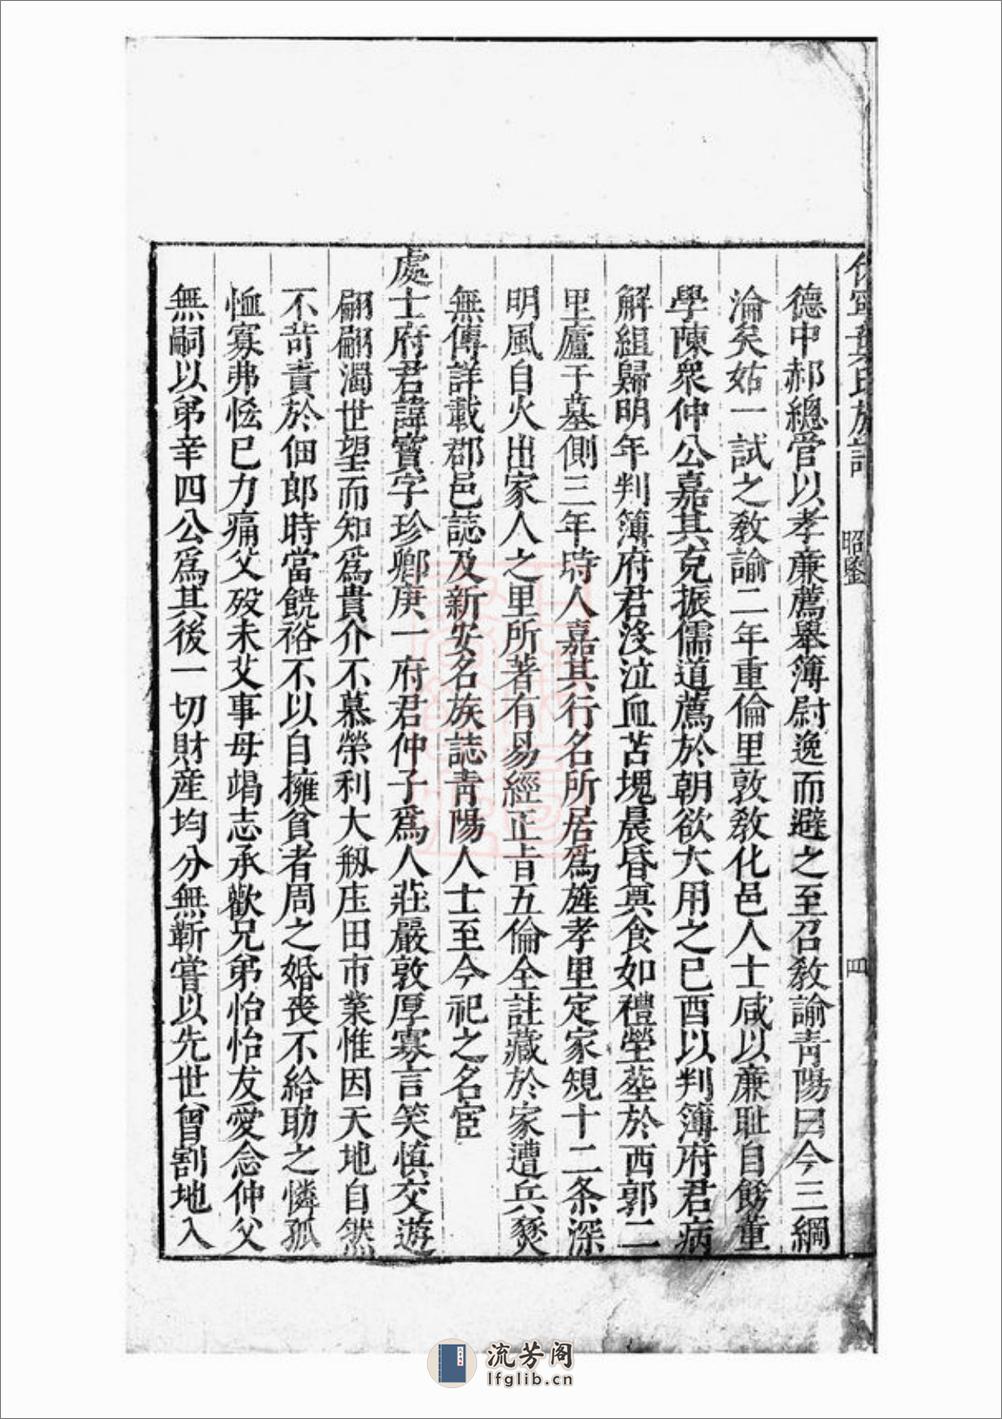 休寧葉氏族譜
昭鑒
四
德中郝總管以孝廉薦舉簿尉逸而避之至召教諭青陽曰今三綱
淪矣姑一試之教諭二年重倫里敦教化邑人士咸以廉耻自餝董
學陳衆仲公嘉其克振儒道薦於朝欲大用之已酉以判簿府君病
解組歸明年判簿府君沒泣血苫塊晨昏奠食如禮塋塟於西郭二
里廬于墓側三年時人嘉其行名所居為旌孝里定家規十二条深
明風自火出家人之里所著有易經正旨五倫全註藏於家遭兵燹
無傳詳載郡邑誌及新安名族誌青陽人士至今祀之名宦
處士府君諱寶字珍卿庚一府君仲子爲人莊嚴敦厚寡言笑慎交遊
翩翩濁世望而知爲貴介不慕榮利大剏庄田市業惟因天地自然
不苛責於佃郎時當饒裕不以自擁貧者周之婚丧不給助之憐孤
恤寡弗恡已力痛父殁未艾事母竭志承歡兄弟怡怡友愛念仲父
無嗣以弟辛四公爲其後一切財產均分無靳嘗以先世曾割地入
流芳阁
lfglib.cn